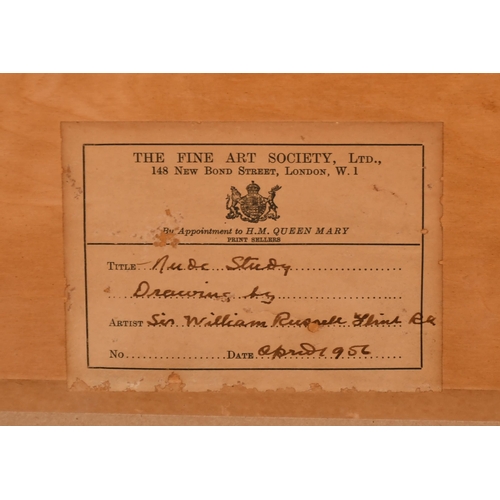 THE FINE ART SOCIETY, LTD.,
148 NEW BOND STREET, LONDON, W.1
By Appointment to H.M. QUEEN MARY
PRINT SELLERS
TITLE Nude Study
Drawing by
ARTIST Sir William Russell Flint RA
NO. DATE April 1956